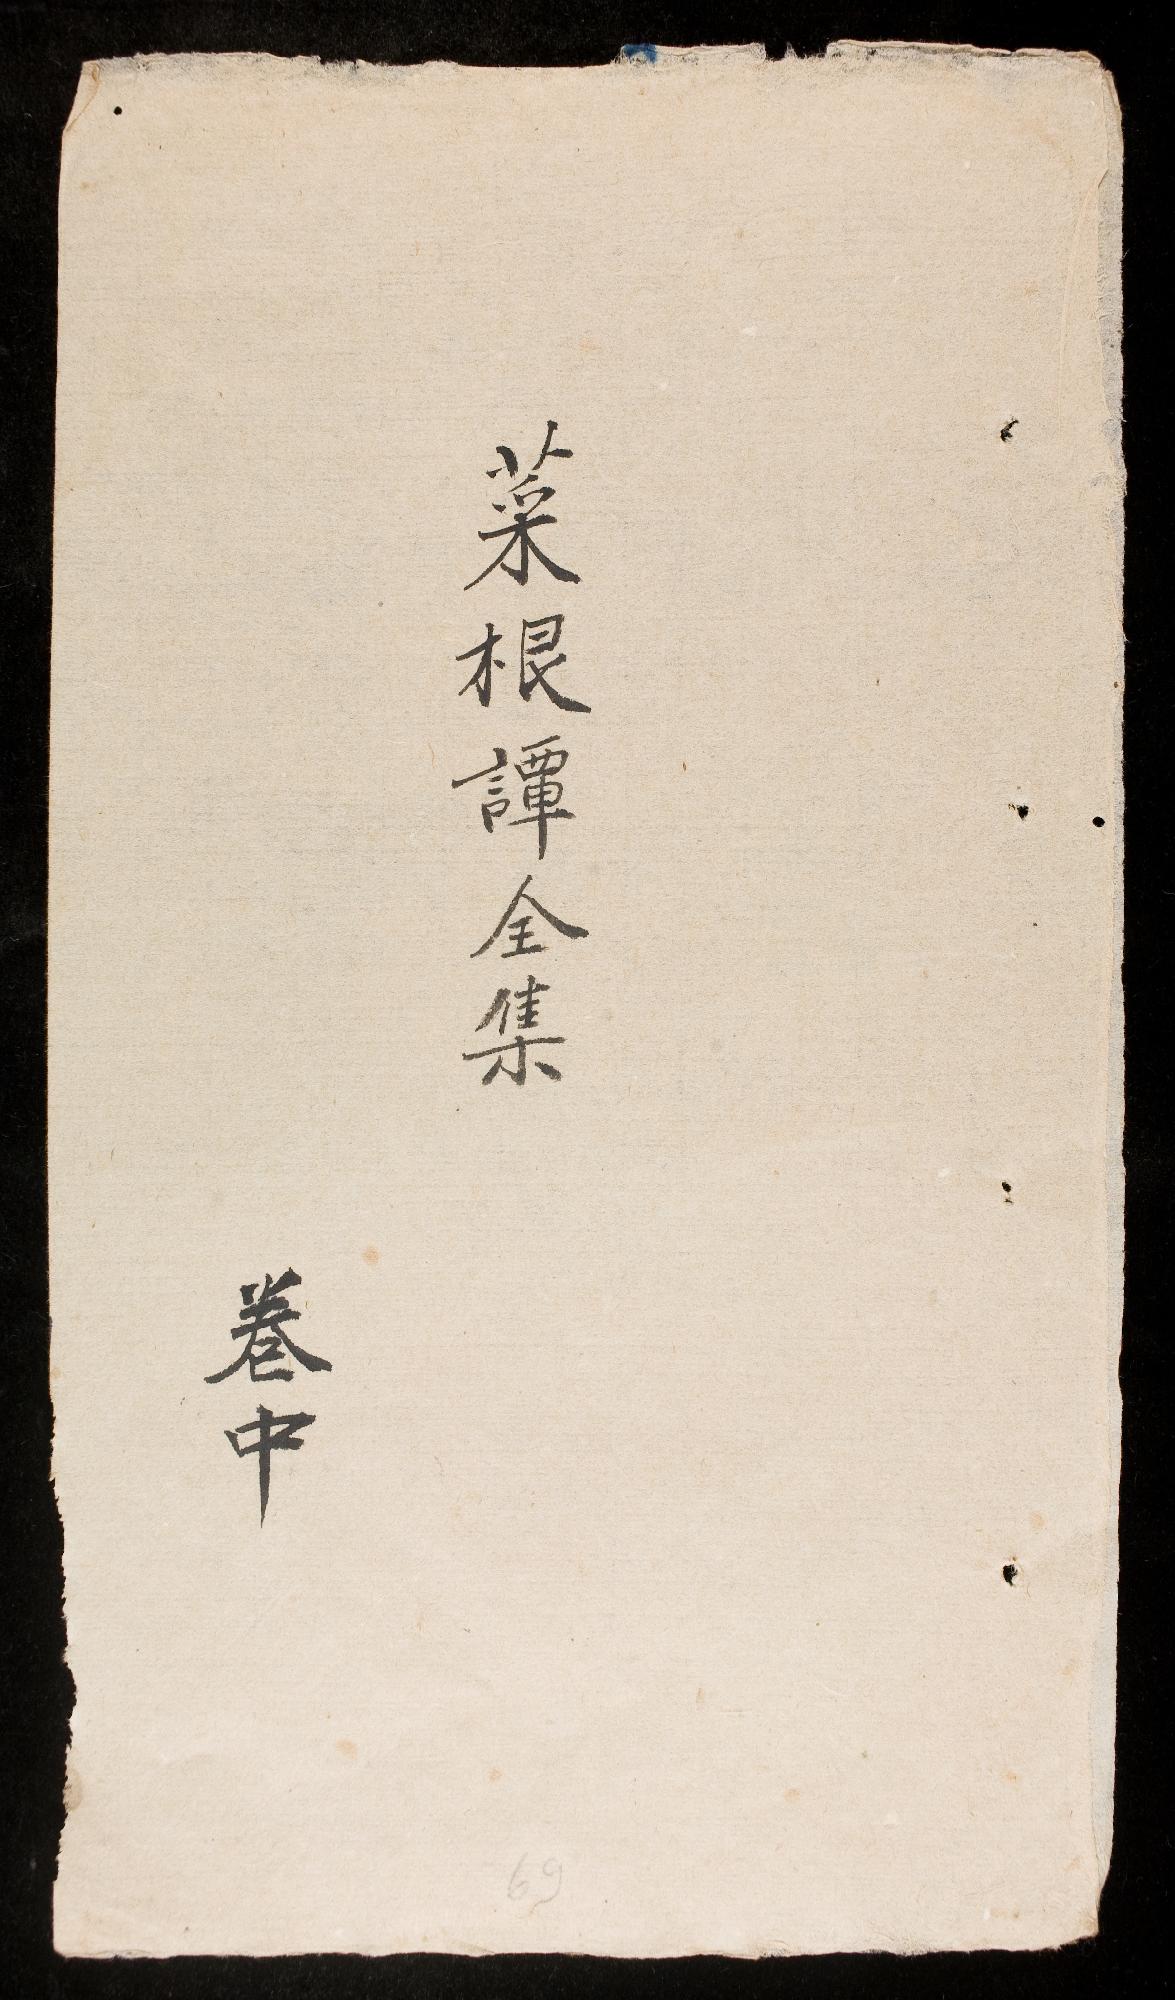 菜根譚全集
卷中
69